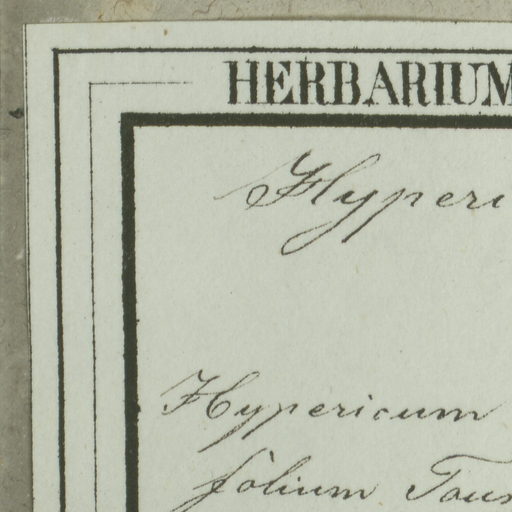 HERBARIUM
Hyperi
Hypericum
folium Tour